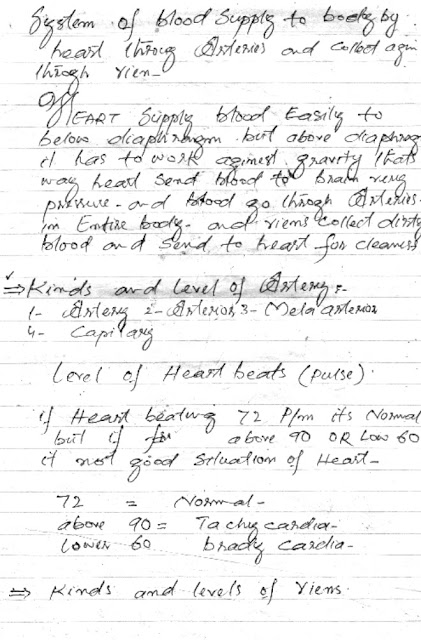 System of blood Supply to body by
heart throug Arteries and collect agin
through vien-
HEART Supply blood Easily to
below diaphragm but above diaphrag
it has to work aginest gravity thats
way heart Send blood to brain very
pressure - and blood go through Arteries.
in Entire body- and viens collect dirty
blood and Send to heart for cleaness
⇒ Kinds and level of Artery:-
1- Artery 2- Arterios 3- Meta arterios
4- Capilary
Level of Heart beats (pulse).
if Heart beating 72 P/m its Normal
but if above 90 OR Low 60
it not good Situation of Heart-
72 = Normal-
above 90 = Tachy cardia-
Lower 60 brady cardia-
⇒ Kinds and levels of Viens.